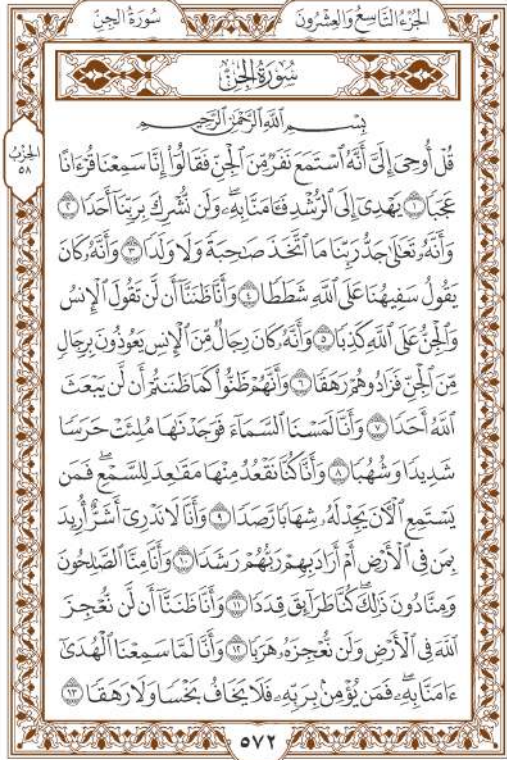 سُورَةُ الجِنِّ
الجُزْءُ التَّاسِعُ وَالعِشْرُونَ
سُورَةُ الجِنِّ
بِسْمِ ٱللَّهِ ٱلرَّحْمَٰنِ ٱلرَّحِيمِ
الحِزْبُ
٥٨
قُلْ أُوحِىَ إِلَىَّ أَنَّهُ ٱسْتَمَعَ نَفَرٌ مِّنَ ٱلْجِنِّ فَقَالُوٓا۟ إِنَّا سَمِعْنَا قُرْءَانًا
عَجَبًا ۝١ يَهْدِىٓ إِلَى ٱلرُّشْدِ فَـَٔامَنَّا بِهِۦ ۖ وَلَن نُّشْرِكَ بِرَبِّنَآ أَحَدًا ۝٢
وَأَنَّهُۥ تَعَٰلَىٰ جَدُّ رَبِّنَا مَا ٱتَّخَذَ صَٰحِبَةً وَلَا وَلَدًا ۝٣ وَأَنَّهُۥ كَانَ
يَقُولُ سَفِيهُنَا عَلَى ٱللَّهِ شَطَطًا ۝٤ وَأَنَّا ظَنَنَّآ أَن لَّن تَقُولَ ٱلْإِنسُ
وَٱلْجِنُّ عَلَى ٱللَّهِ كَذِبًا ۝٥ وَأَنَّهُۥ كَانَ رِجَالٌ مِّنَ ٱلْإِنسِ يَعُوذُونَ بِرِجَالٍ
مِّنَ ٱلْجِنِّ فَزَادُوهُمْ رَهَقًا ۝٦ وَأَنَّهُمْ ظَنُّوا۟ كَمَا ظَنَنتُمْ أَن لَّن يَبْعَثَ
ٱللَّهُ أَحَدًا ۝٧ وَأَنَّا لَمَسْنَا ٱلسَّمَآءَ فَوَجَدْنَٰهَا مُلِئَتْ حَرَسًا
شَدِيدًا وَشُهُبًا ۝٨ وَأَنَّا كُنَّا نَقْعُدُ مِنْهَا مَقَٰعِدَ لِلسَّمْعِ ۖ فَمَن
يَسْتَمِعِ ٱلْـَٔانَ يَجِدْ لَهُۥ شِهَابًا رَّصَدًا ۝٩ وَأَنَّا لَا نَدْرِىٓ أَشَرٌّ أُرِيدَ
بِمَن فِى ٱلْأَرْضِ أَمْ أَرَادَ بِهِمْ رَبُّهُمْ رَشَدًا ۝١٠ وَأَنَّا مِنَّا ٱلصَّٰلِحُونَ
وَمِنَّا دُونَ ذَٰلِكَ ۖ كُنَّا طَرَآئِقَ قِدَدًا ۝١١ وَأَنَّا ظَنَنَّآ أَن لَّن نُّعْجِزَ
ٱللَّهَ فِى ٱلْأَرْضِ وَلَن نُّعْجِزَهُۥ هَرَبًا ۝١٢ وَأَنَّا لَمَّا سَمِعْنَا ٱلْهُدَىٰٓ
ءَامَنَّا بِهِۦ ۖ فَمَن يُؤْمِنۢ بِرَبِّهِۦ فَلَا يَخَافُ بَخْسًا وَلَا رَهَقًا ۝١٣
٥٧٢